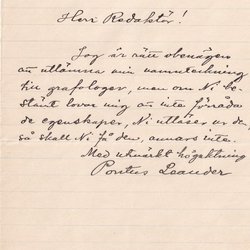 Herr Redaktör!
Jag är rätt obenägen
att utlämna min namnteckning
till grafologer, men om Ni be-
stämt lovar mig att inte förråda
de egenskaper, Ni utläser ur den
så skall Ni få den, annars inte.
Med utmärkt högaktning
Pontus Leander